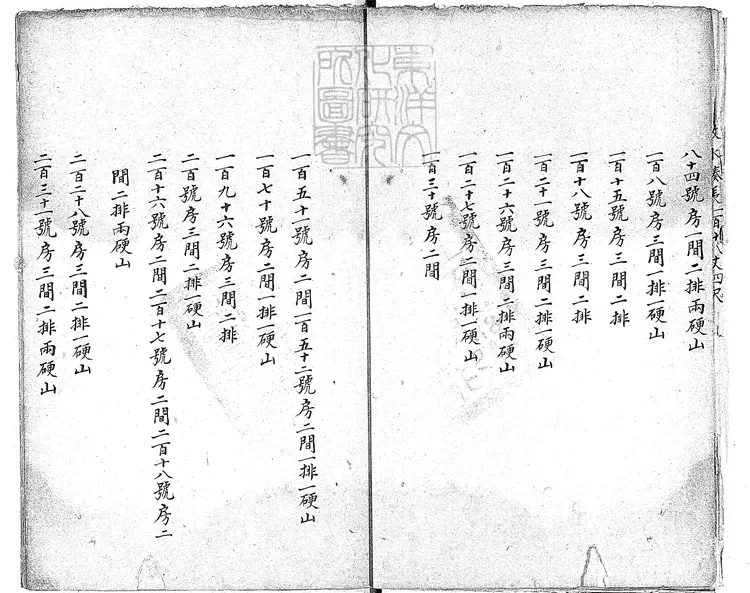 東洋文
化研究
所圖書
八十四號房一間二排兩硬山
一百八號房三間一排一硬山
一百十五號房三間二排
一百十八號房三間二排
一百二十一號房三間二排一硬山
一百二十六號房三間二排兩硬山
一百二十七號房二間一排一硬山
一百三十號房二間
一百五十一號房二間一百五十二號房二間一排一硬山
一百七十號房二間一排一硬山
一百九十六號房三間二排
二百號房三間二排一硬山
二百十六號房二間二百十七號房二間二百十八號房二
間二排兩硬山
二百二十八號房三間二排一硬山
二百三十一號房三間二排兩硬山